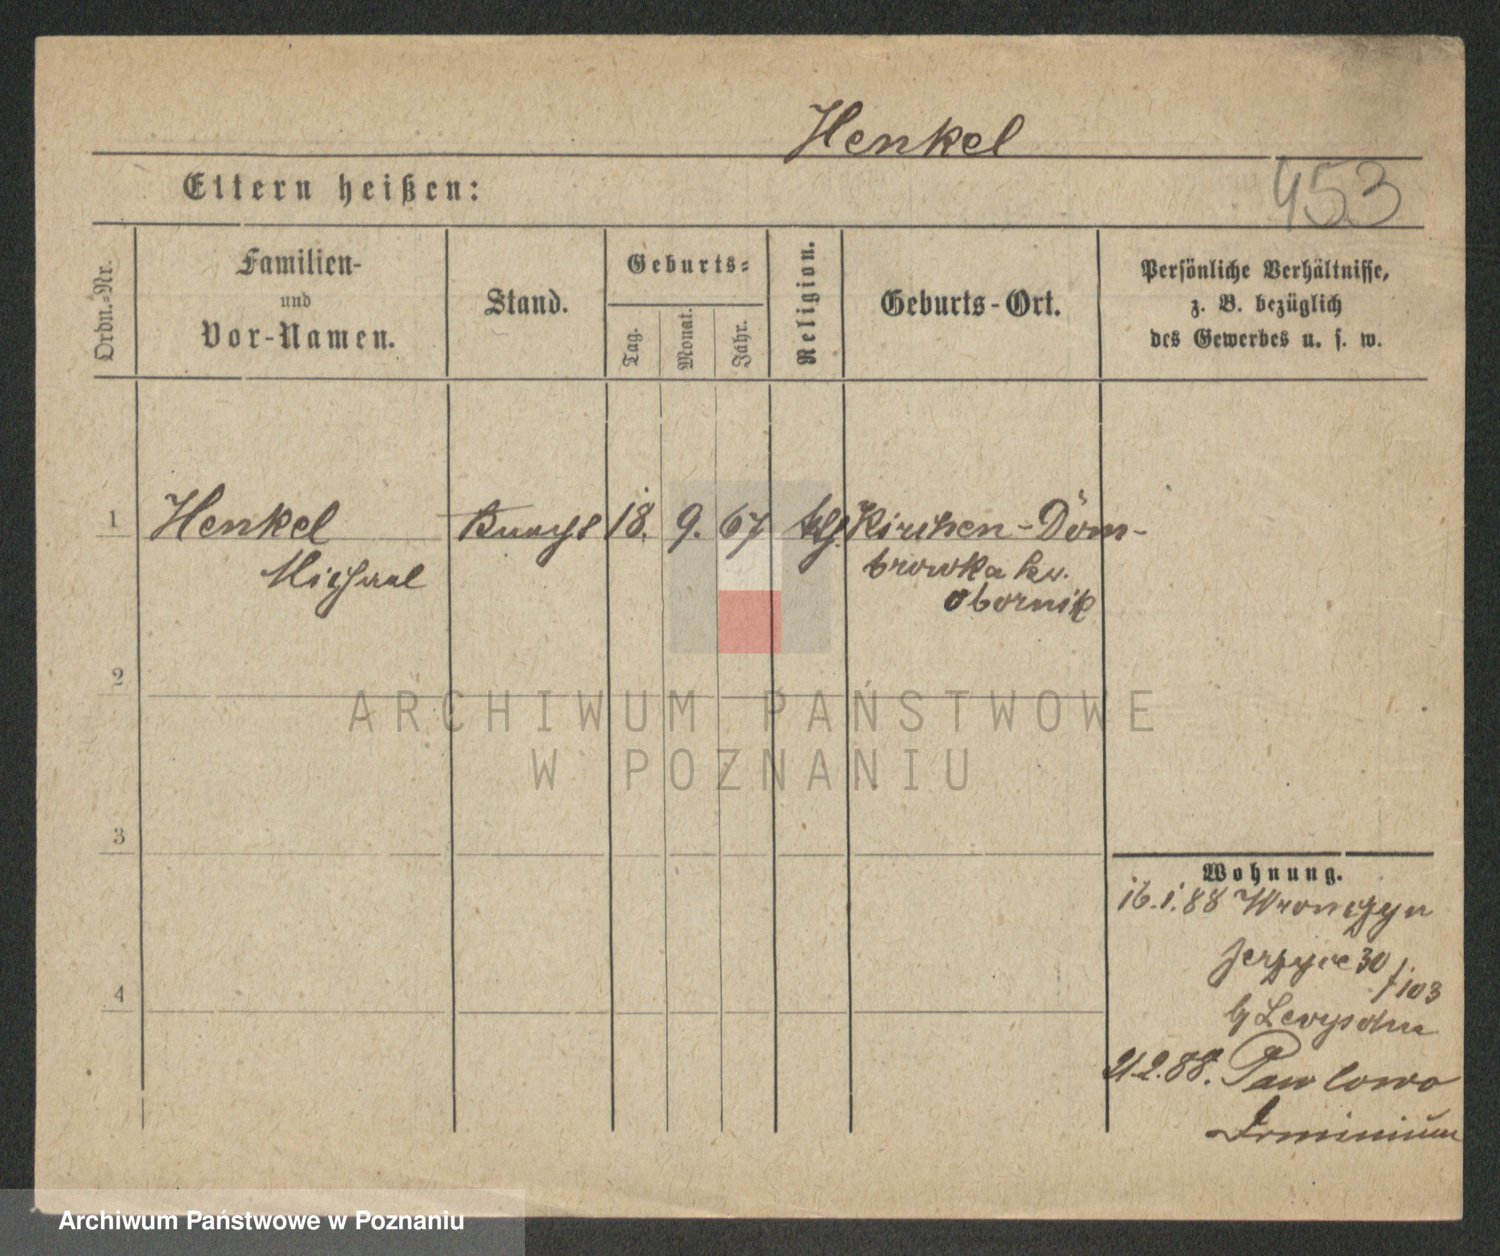 Henkel
453
Eltern heißen:
Ordn.-Nr.
Familien-
und
Vor-Namen.
Stand.
Geburts-
Tag.
Monat.
Jahr.
Religion.
Geburts-Ort.
Persönliche Verhältnisse,
z. B. bezüglich
des Gewerbes u. s. w.
1 Henkel Knecht 18. 9. 67 Kirchen-Dom-
Michael browka kr.
Obornik
2
ARCHIWUM PAŃSTWOWE
W POZNANIU
3
4
Wohnung.
16.1.88 Wronczyn
Jerzyce 30/103
21.2.88. Pawlowo
Dominium
Archiwum Państwowe w Poznaniu